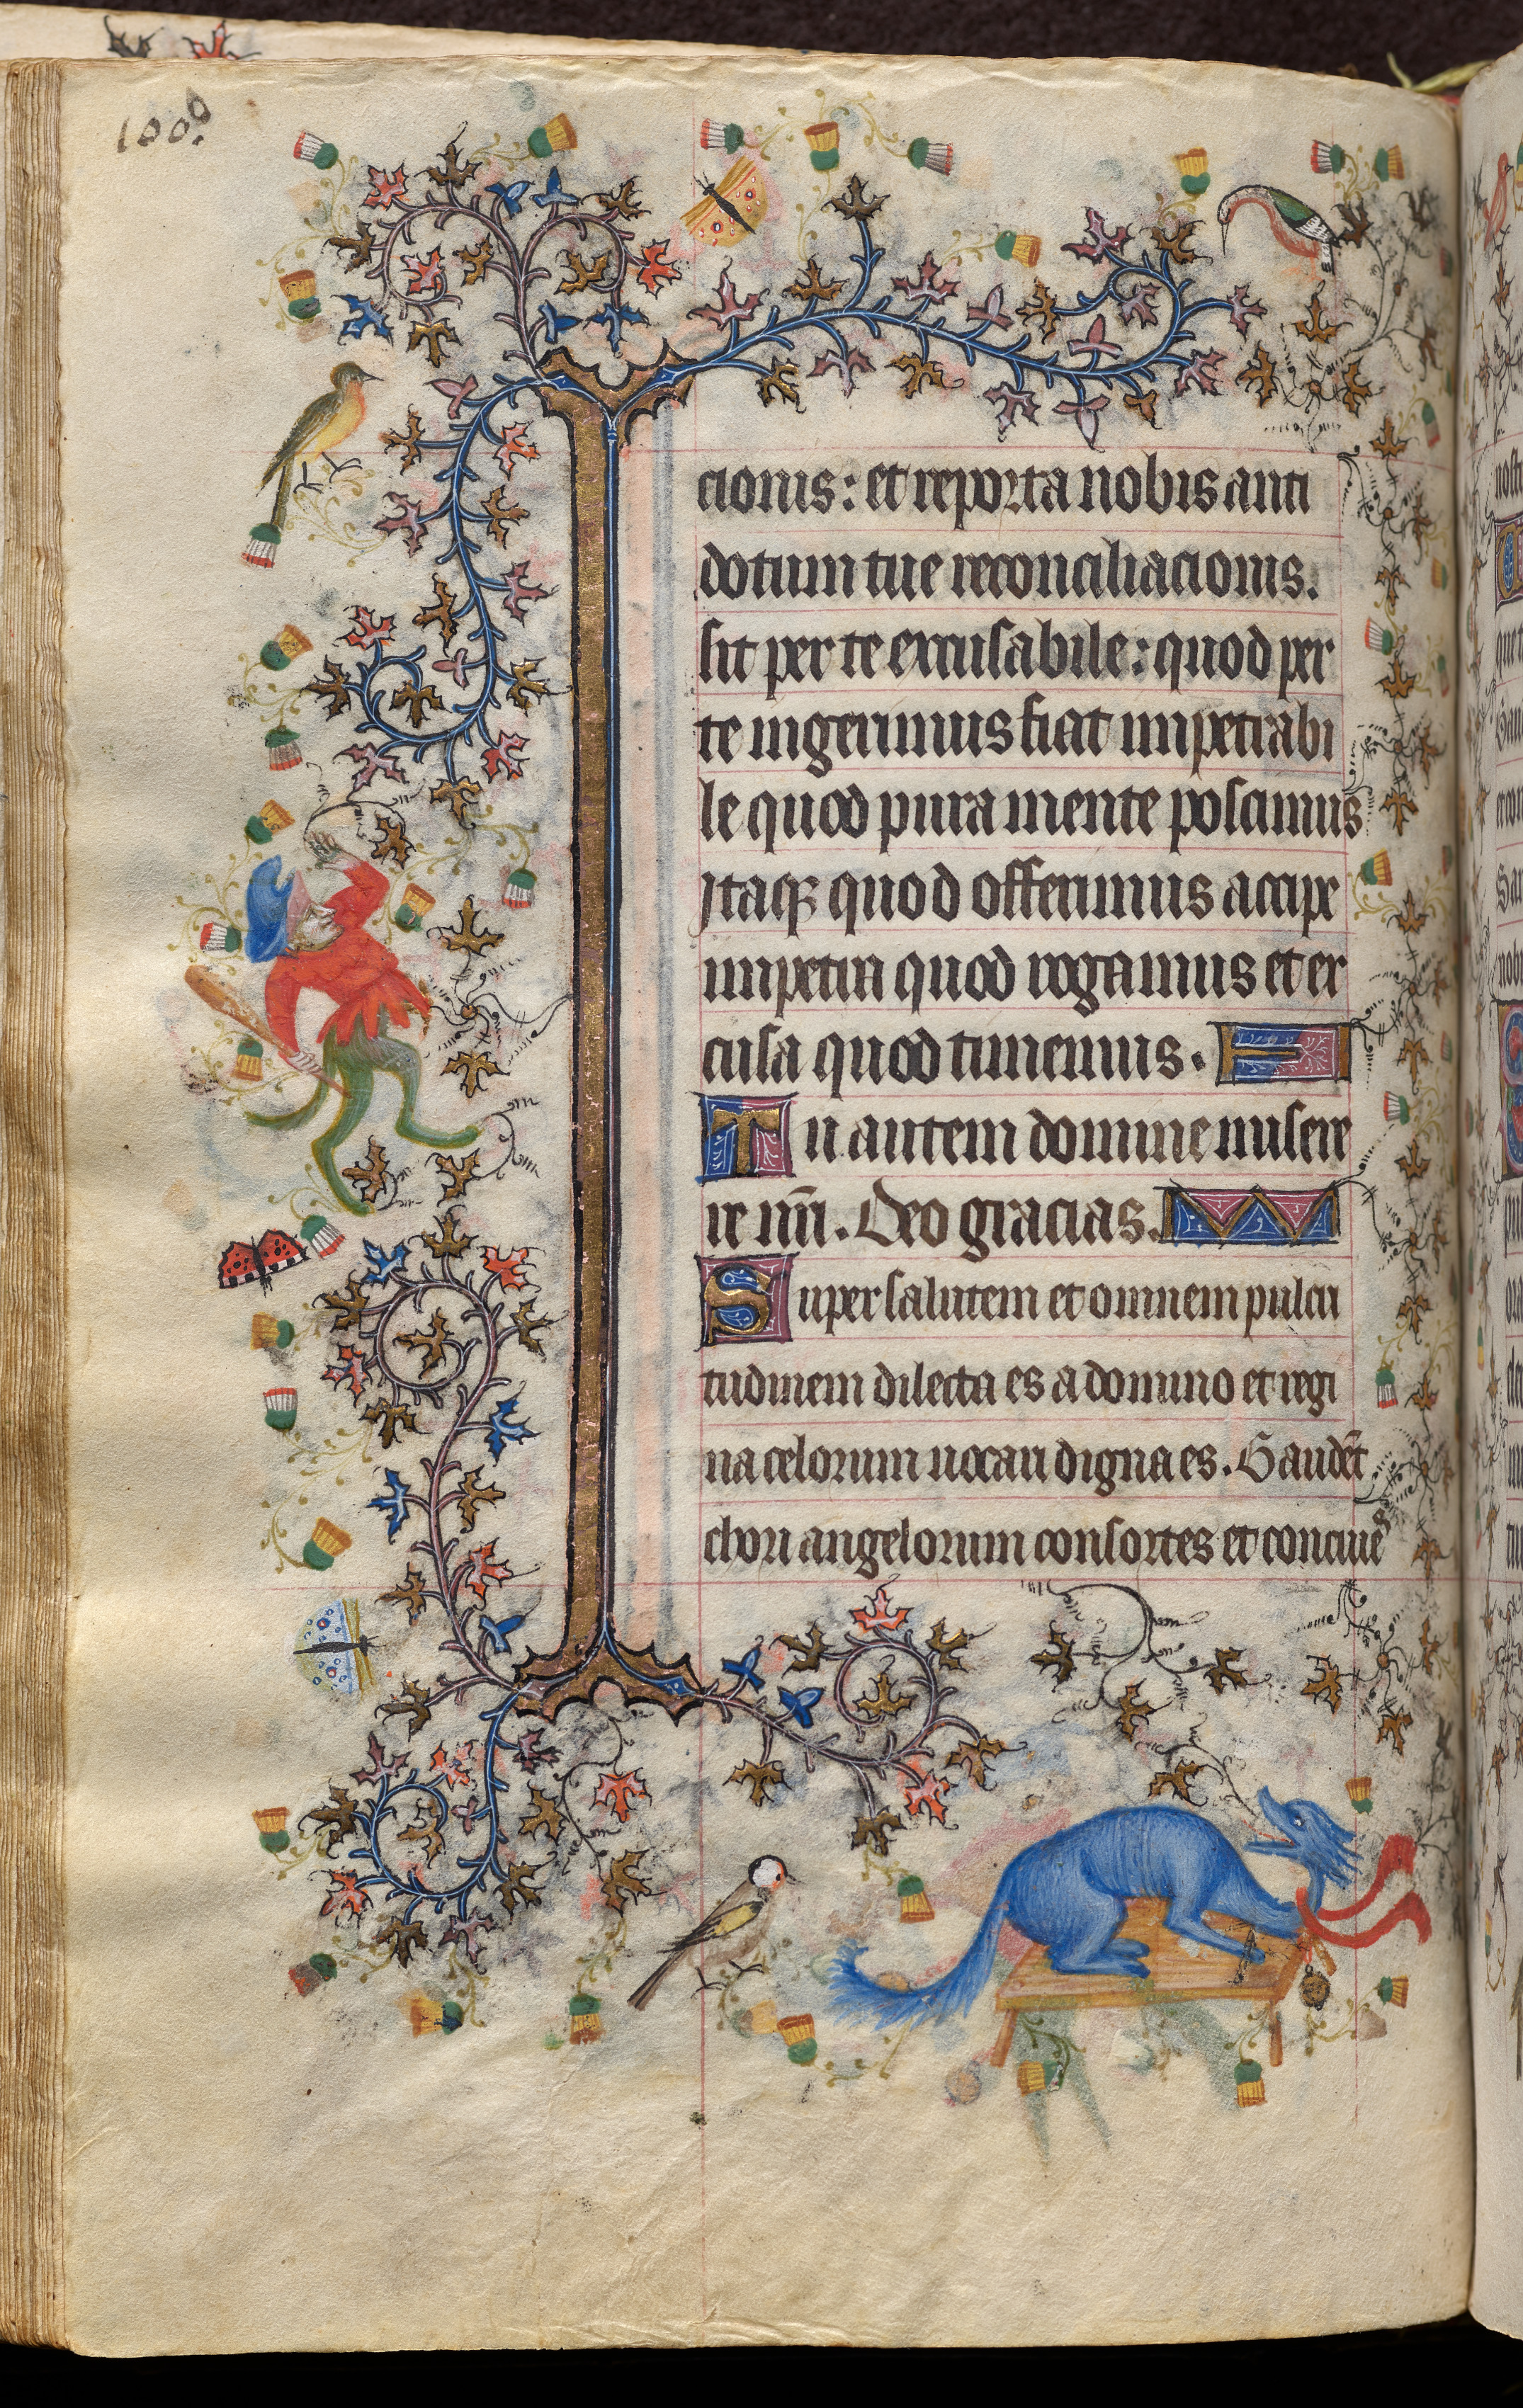 100b.
cionis: et reporta nobis anti
dotum tue reconciliacionis.
sit per te excusabile: quod per
te ingerimus fiat impetrabi
le quod pura mente poscimus
Itaqꝫ quod offerimus accipe
impetra quod rogamus et ex
cusa quod timemus.
Tu autem domine misere
re nr̄i. Deo gracias.
Super salutem et omnem pulcri
tudinem dilecta es a domino et regi
na celorum uocari digna es. Gaudēt
chori angelorum consortes et conciue